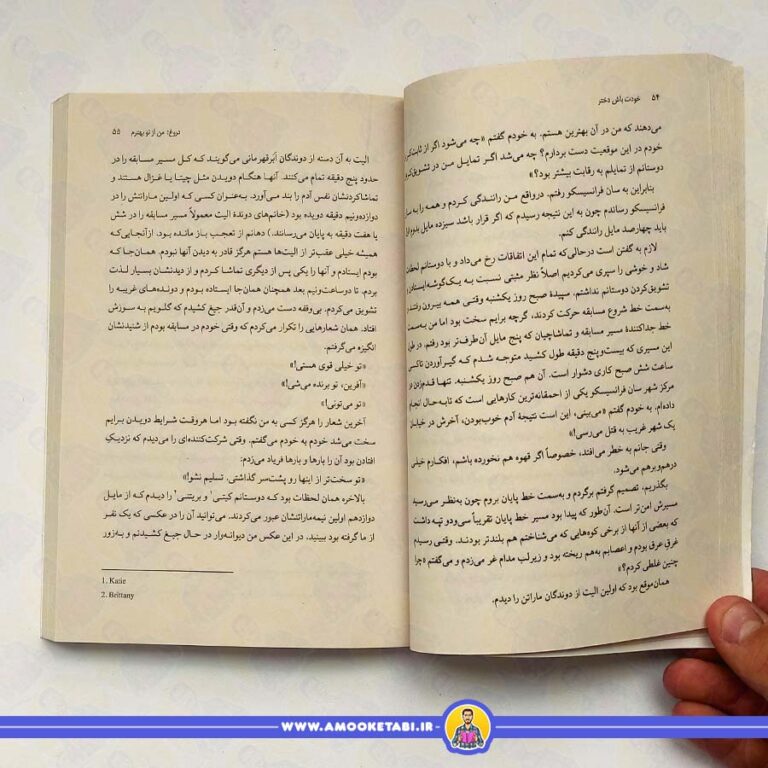 ۵۴ خودت باش دختر
می‌دهند که من در آن بهترین هستم. به خودم گفتم «چه می‌شود اگر از ثابت‌کردن
خودم در این موقعیت دست بردارم؟ چه می‌شد اگر تمایل من در تشویق‌کردن
دوستانم از تمایلم به رقابت بیشتر بود؟»
بنابراین به سان فرانسیسکو رفتم. درواقع من رانندگی کردم و همه را به سان
فرانسیسکو رساندم چون به این نتیجه رسیدم که اگر قرار باشد سیزده مایل بدوم اول
باید چهارصد مایل رانندگی کنم.
لازم به گفتن است درحالی‌که تمام این اتفاقات رخ می‌داد و با دوستانم لحظات
شاد و خوشی را سپری می‌کردیم اصلاً نظر مثبتی نسبت به یک‌گوشه‌ایستادن و
تشویق‌کردن دوستانم نداشتم. سپیدهٔ صبح روز یکشنبه وقتی همه بیرون رفتند و
به‌سمت خط شروع مسابقه حرکت کردند، گرچه برایم سخت بود اما من به‌سمت
خط جداکنندهٔ مسیر مسابقه و تماشاچیان که پنج مایل آن‌طرف‌تر بود رفتم. در طول
این مسیری که بیست‌وپنج دقیقه طول کشید متوجه شدم که گیرآوردن تاکسی
ساعت شش صبح کاری دشوار است. آن هم صبح روز یکشنبه. تنها قدم‌زدن در
مرکز شهر سان فرانسیسکو یکی از احمقانه‌ترین کارهایی است که تابه‌حال انجام
داده‌ام. به خودم گفتم «می‌بینی، این است نتیجهٔ آدم خوب‌بودن، آخرش در خیابان
یک شهر غریب به قتل می‌رسی!»
وقتی جانم به خطر می‌افتد، خصوصاً اگر قهوه هم نخورده باشم، افکارم خیلی
درهم‌وبرهم می‌شود.
بگذریم، تصمیم گرفتم برگردم و به‌سمت خط پایان بروم چون به‌نظر می‌رسید
مسیرش امن‌تر است. آن‌طور که پیدا بود مسیر خط پایان تقریباً سی‌ودو تپه داشت
که بعضی از آنها از برخی کوه‌هایی که می‌شناختم هم بلندتر بودند. وقتی رسیدم
غرق عرق بودم و اعصابم به‌هم ریخته بود و زیرلب مدام غر می‌زدم و می‌گفتم «چرا
چنین غلطی کردم؟»
همان‌موقع بود که اولین الیت از دوندگان ماراتن را دیدم.
دروغ: من از تو بهترم ۵۵
الیت به آن دسته از دوندگان اَبَرقهرمانی می‌گویند که کل مسیر مسابقه را در
حدود پنج دقیقه تمام می‌کنند. آنها هنگام دویدن مثل چیتا یا غزال هستند و
تماشاکردنشان نفس آدم را بند می‌آورد. به‌عنوان کسی که اولین ماراتنش را در
دوازده‌ونیم دقیقه دویده بود (خانم‌های دوندهٔ الیت معمولاً مسیر مسابقه را در شش
یا هفت دقیقه به پایان می‌رسانند.) دهانم از تعجب باز مانده بود. ازآنجایی‌که
همیشه خیلی عقب‌تر از الیت‌ها هستم هرگز قادر به دیدن آنها نبودم. همان‌جا که
بودم ایستادم و آنها را یکی پس از دیگری تماشا کردم و از دیدنشان بسیار لذت
بردم. تا دوساعت‌ونیم بعد همچنان همان‌جا ایستاده بودم و دونده‌های غریبه را
تشویق می‌کردم. بی‌وقفه دست می‌زدم و آن‌قدر جیغ کشیدم که گلویم به سوزش
افتاد. همان شعارهایی را تکرار می‌کردم که وقتی خودم در مسابقه بودم از شنیدنشان
انگیزه می‌گرفتم.
«تو خیلی قوی هستی!»
«آفرین، تو برنده می‌شی!»
«تو می‌تونی!»
آخرین شعار را هرگز کسی به من نگفته بود اما هروقت شرایط دویدن برایم
سخت می‌شد خودم به خودم می‌گفتم. وقتی شرکت‌کننده‌ای را می‌دیدم که نزدیکِ
افتادن بود آن را بارها و بارها فریاد می‌زدم:
«تو سخت‌تر از اینها رو پشت‌سر گذاشتی، تسلیم نشو!»
بالاخره همان لحظات بود که دوستانم کیتی۱ و بریتنی۲ را دیدم که از مایل
دوازدهم اولین نیمه‌ماراتنشان عبور می‌کردند. می‌توانید آن را در عکسی که یک نفر
از ما گرفته بود ببینید. در این عکس من دیوانه‌وار در حال جیغ کشیدنم و به‌زور
1. Katie
2. Brittany
WWW.AMOOKETABI.IR